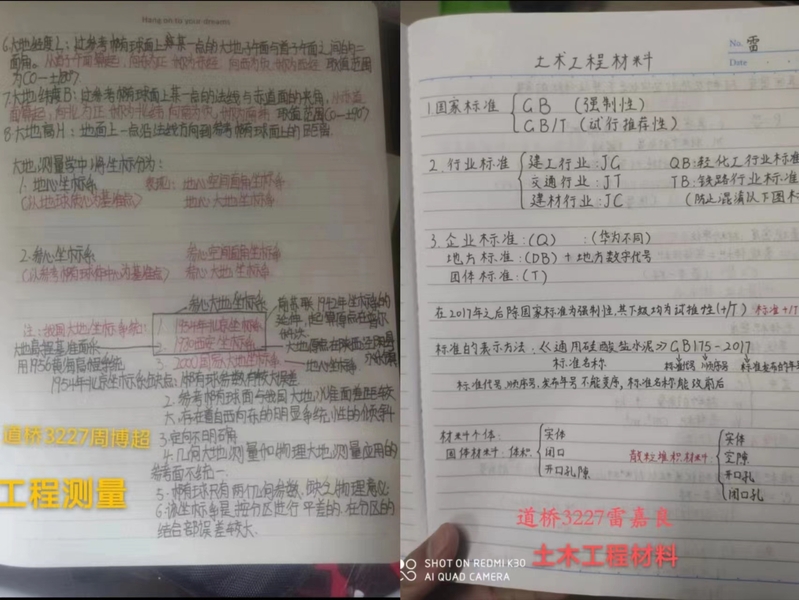 Hang on to your dreams
6.大地经度L：过参考椭球面上某一点的大地子午面与首子午面之间的二
面角。
取值范围
为(0—±180°)
7.大地纬度B：过参考椭球面上某一点的法线与赤道面的夹角，
取值范围(0—±90°)
8.大地高H：地面上一点沿法线方向到参考椭球面上的距离。
大地测量学中将坐标分为：
1.地心坐标系 表现：地心空间直角坐标系
(以地球质心为基准点) 地心大地坐标系
2.参心坐标系 参心空间直角坐标系
(以参考椭球体中心为基准点) 参心大地坐标系
参心大地坐标系
注：我国大地坐标系统： 1. 1954年北京坐标系
大地高程基准面采
3. 2000国家大地坐标系
用1956黄海高程系统
地心坐标系
1954年北京坐标系缺点：
2.参考椭球面与我国大地水准面差距较
大，存在着自西向东的明显系统性的倾斜
3.定向不明确
4.几何大地测量和物理大地测量应用的
参考面不统一
5.椭球只有两个几何参数，缺乏物理意义
6.该坐标系是按分区进行平差的，在分区的
结合部误差较大.
道桥3227周博超
工程测量
No. 雷
Date
土木工程材料
1.国家标准 GB (强制性)
GB/T (试行推荐性)
2.行业标准 建工行业：JG QB:轻化工行业标准
交通行业：JT TB:铁路行业标准
建材行业：JC (防止混淆以下图标
3.企业标准：(Q) ：(华为不同)
地方标准：(DB)+地方数字代号
团体标准：(T)
在2017年之后除国家标准为强制性，其下级均为试推性(+/T) 标准+/T
标准的表示方法：《通用硅酸盐水泥》GB175-2017
标准名称 标准代号 顺序号 标准发布的年
标准代号、顺序号、发布年号不能变序，标准名称能改前后
材料个体： 实体
固体材料 体积 闭口
开口孔隙
散粒堆积材料 实体
空隙
开口孔
闭口孔
道桥3227雷嘉良
土木工程材料
SHOT ON REDMI K30
AI QUAD CAMERA